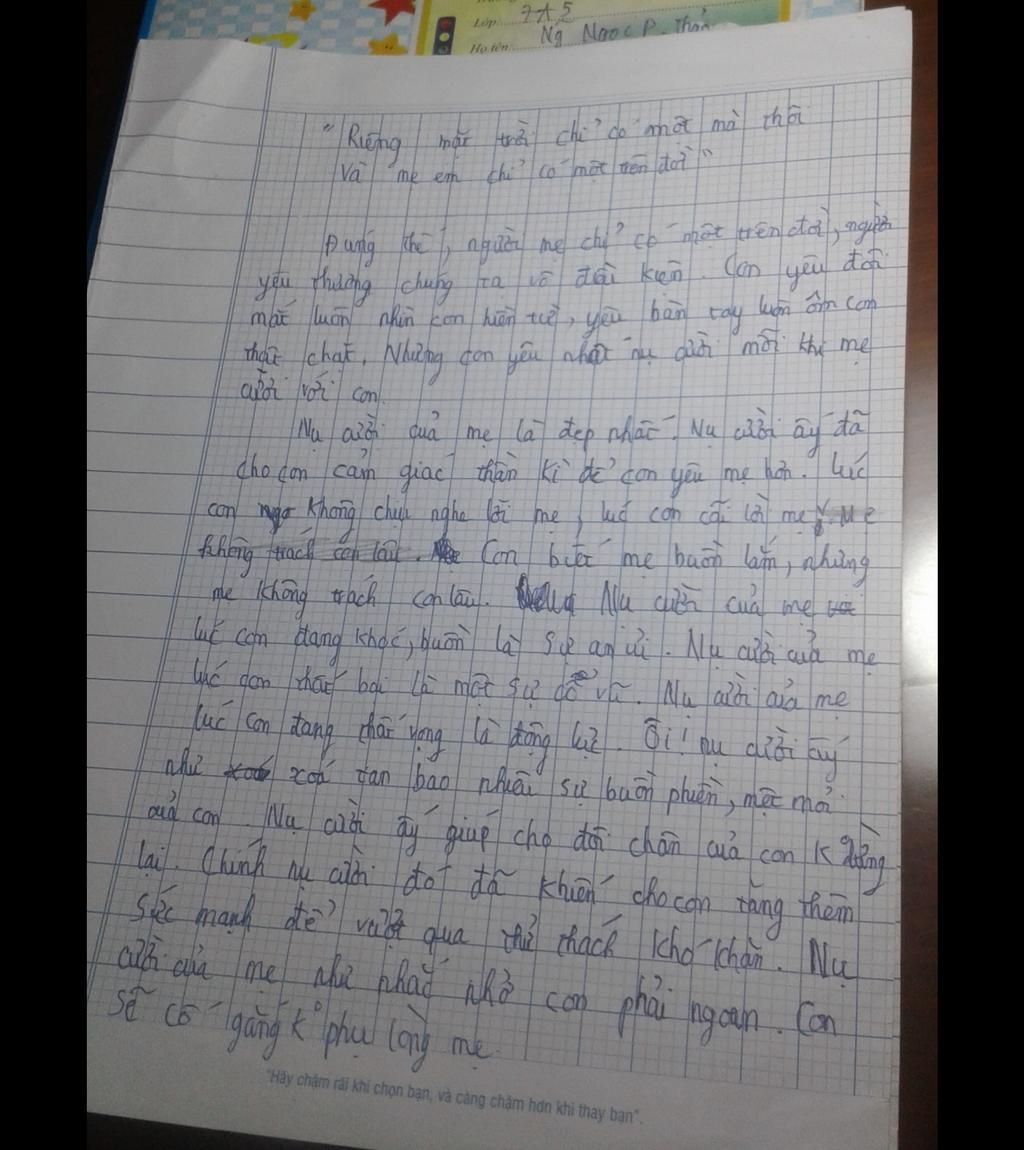 Lớp: 7A5
Họ tên: Ng Ngọc P. Thảo
"Riêng mặt trời chỉ có một mà thôi
Và mẹ em chỉ có một trên đời"
Đúng thế, người mẹ chỉ có một trên đời, người
yêu thương chúng ta vô điều kiện. Con yêu đôi
mắt luôn nhìn con hiền từ, yêu bàn tay luôn ôm con
thật chặt. Nhưng con yêu nhất nụ cười mỗi khi mẹ
cười với con.
Nụ cười của mẹ là đẹp nhất. Nụ cười ấy đã
cho con cảm giác thần kì để con yêu mẹ hơn. Lúc
con không chịu nghe lời mẹ, lúc con cãi lời mẹ
Con biết mẹ buồn lắm, nhưng
mẹ không trách con lâu. Nụ cười của mẹ
lúc con đang khóc, buồn là sự an ủi. Nụ cười của mẹ
lúc con thất bại là một sự cổ vũ. Nụ cười của mẹ
lúc con đang thất vọng là động lực. Ôi! nụ cười ấy
như xoá tan bao nhiêu sự buồn phiền, mệt mỏi
của con. Nụ cười ấy giúp cho đôi chân của con k dừng
lại. Chính nụ cười đó đã khiến cho con tăng thêm
sức mạnh để vượt qua thử thách khó khăn. Nụ
cười của mẹ như nhắc nhở con phải ngoan. Con
sẽ cố gắng k phụ lòng mẹ.
"Hãy chậm rãi khi chọn bạn, và càng chậm hơn khi thay bạn".